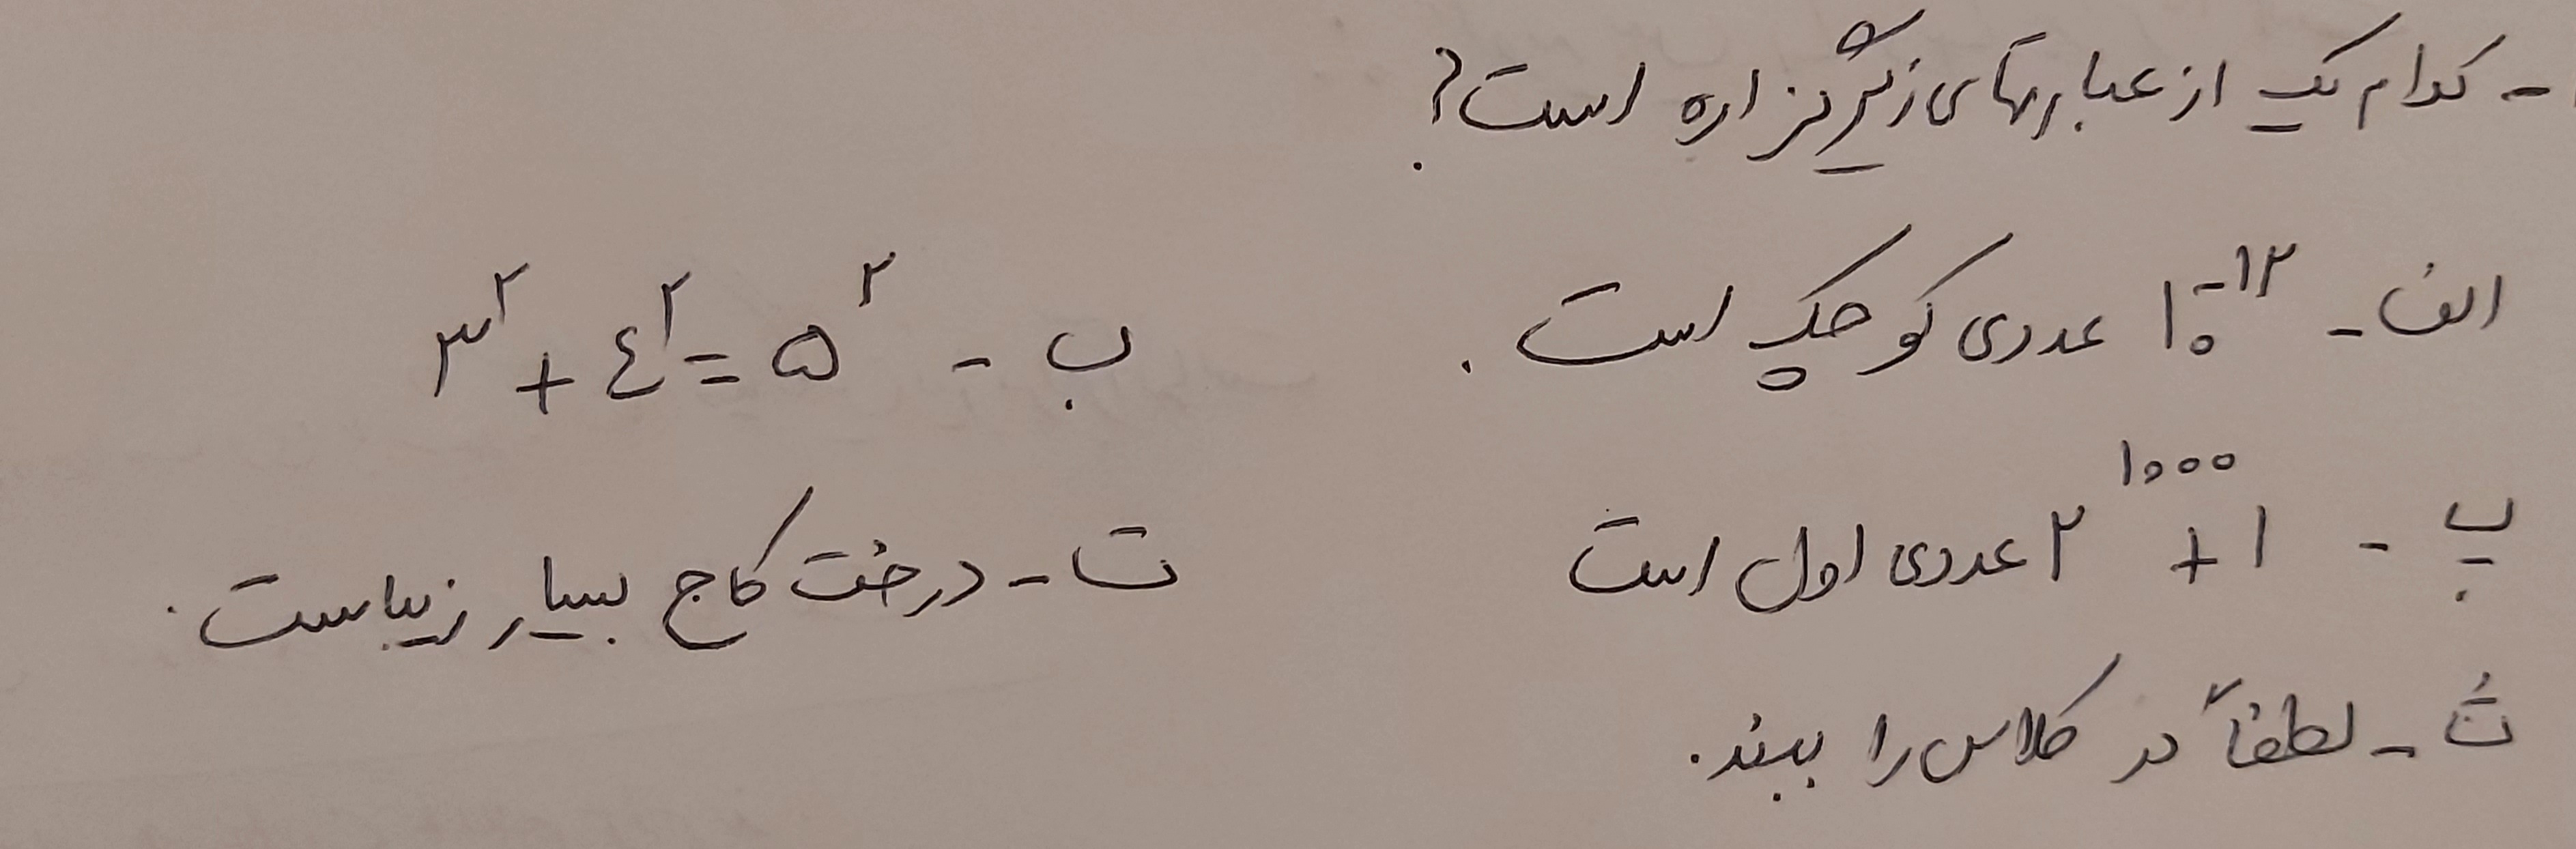 - کدام یک از عبارتهای زیر گزاره است؟
الف - ۱۰^-۱۲ عددی کوچک است. ب - ۳^۲ + ٤^۲ = ۵^۲
پ - ۲^۱۰۰۰ + ۱ عددی اول است ت - درخت کاج بسیار زیباست.
ث - لطفاً در کلاس را ببند.